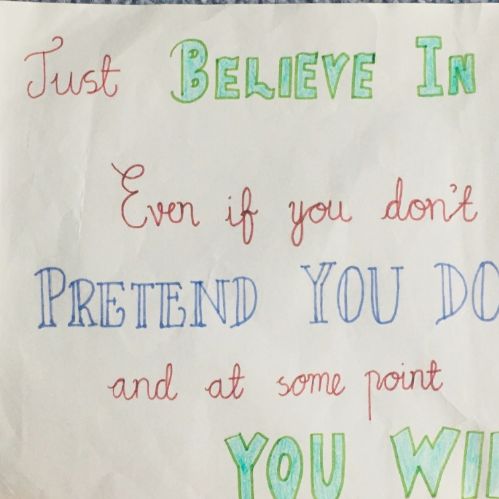 Just BELIEVE IN
Even if you don't
PRETEND YOU DO
and at some point
YOU WIL